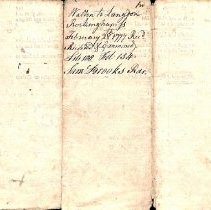 Walton to Langdon
Rockingham ss
February 28th 1777 Recd
Recorded & Examined
Lib 108 Fol 134
Saml Brooks Recr